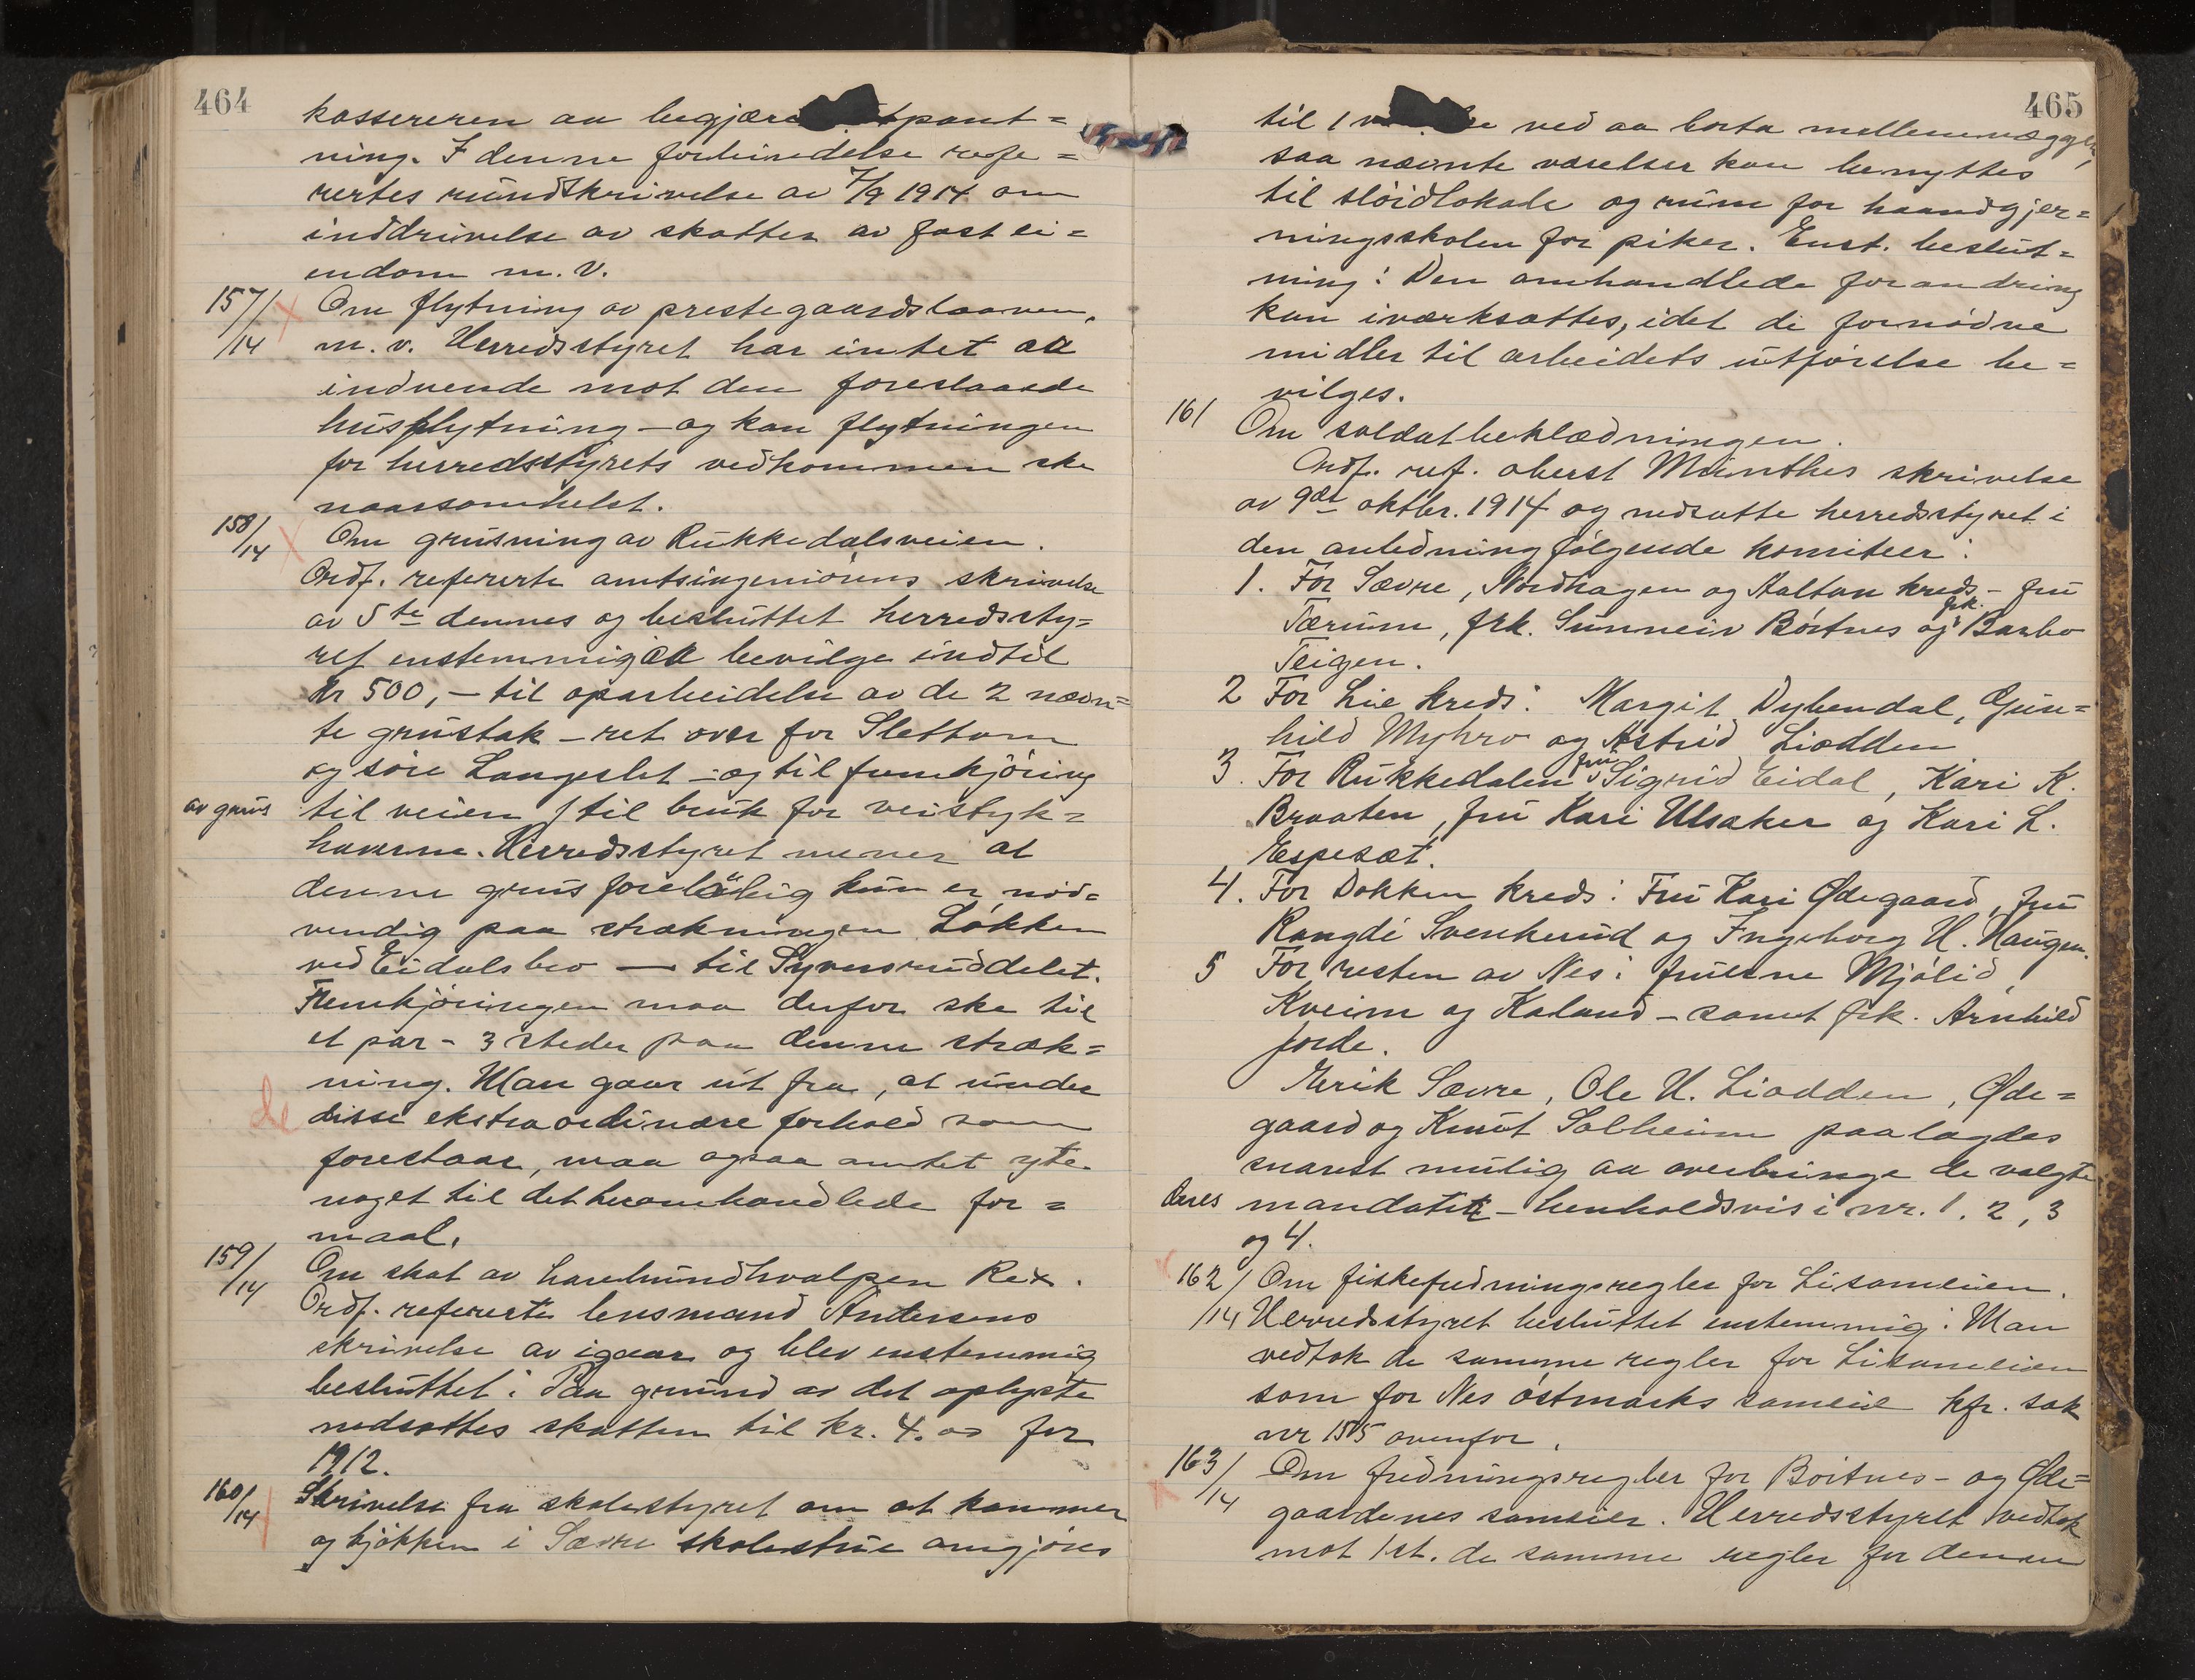 464
kassereren aa begjære utpant=
ning. I denne forbindelse refe=
rertes rundskrivelse av 7/9 1914 om
inddrivelse av skatter av fast ei=
endom m. v.
157/14 Om flytning av prestegaardslaaven,
m. v. Herredsstyret har intet aa
indvende mot den foreslaaede
husflytning – og kan flytningen
for herredsstyrets vedkommen ske
naarsomhelst.
158/14 Om grusning av Rukkedalsveien.
Ordf. refererte amtsingeniørens skrivelse
av 5te dennes og besluttet herredssty=
ret enstemmig aa bevilge indtil
kr 500,– til oparbeidelse av de 2 nævn=
te grustak – ret over for Slettum
og søre Langeslet – og til fremkjøring
av grus til veien / til bruk for veistyk=
haverne. Herredsstyret mener at
denne grus foreløbig kun er nød=
vendig paa strækningen Løkken
ved Eidals bro – til Syversruddelet.
Fremkjøringen maa derfor ske til
et par - 3 steder paa denne stræk=
ning. Man gaar ut fra, at under
de disse ekstraordinære forhold som
forestaar, maa ogsaa amtet yte
noget til det heromhandlede for=
maal.
159/14 Om skat av harehundhvalpen Rex.
Ordf. refererte lensmand Andersens
skrivelse av igaar og blev enstemmig
besluttet: Paa grund av det oplyste
nedsattes skatten til kr. 4.00 for
1912.
160/14 Skrivelse fra skolestyret om at kammer
og kjøkken i Sævre skolestue omgjøres
465
til 1 ved aa borta mellemvæggen,
saa nævnte værelser kan benyttes
til sløidlokale og rum for haandgjer=
ningsskolen for piker. Enst. beslut=
ning: Den omhandlede forandring
kan iværksættes, idet de fornødne
midler til arbeidets utførelse be=
vilges.
161 Om soldatbeklædningen.
Ordf. ref. oberst Münthes skrivelse
av 9de oktbr. 1914 og nedsatte herredsstyret i
den anledning følgende komiteer:
1. For Sævre, Nordhagen og Aaltun kreds – fru
Tærum, frk. Sunneiv Børtnes og frk. Barbo
Teigen.
2 For Lie kreds: Margit Dybendal, Gun=
hild Myhro og Astrid Liodden
3. For Rukkedalen fru Sigrid Eidal, Kari K.
Braaten, fru Kari Ulsaker og Kari L.
Espeset.
4. For Dokken kreds: Fru Kari Ødegaard, fru
Rangdi Svenkerud og Ingeborg H. Haugen.
5 For resten av Nes: fruerne Mjølid,
Kveim og Kaland – samt frk. Arnhild
Jorde.
Eerik Sævre, Ole H. Liodden, Øde=
gaard og Knut Solheim paalagdes
snarest mulig aa overbringe de valgte
deres mandater – henholdsvis i nr. 1. 2, 3
og 4.
162/14 Om fiskefredningsregler for Lisameien.
Herredsstyret besluttet enstemmig: Man
vedtok de samme regler for Lisameien
som for Nes østmarks sameie kfr. sak
nr 155 ovenfor.
163/14 Om fredningsregler for Børtnes- og Øde=
gaardenes sameier. Herredsstyret vedtok
mot 1 st. de samme regler for denne